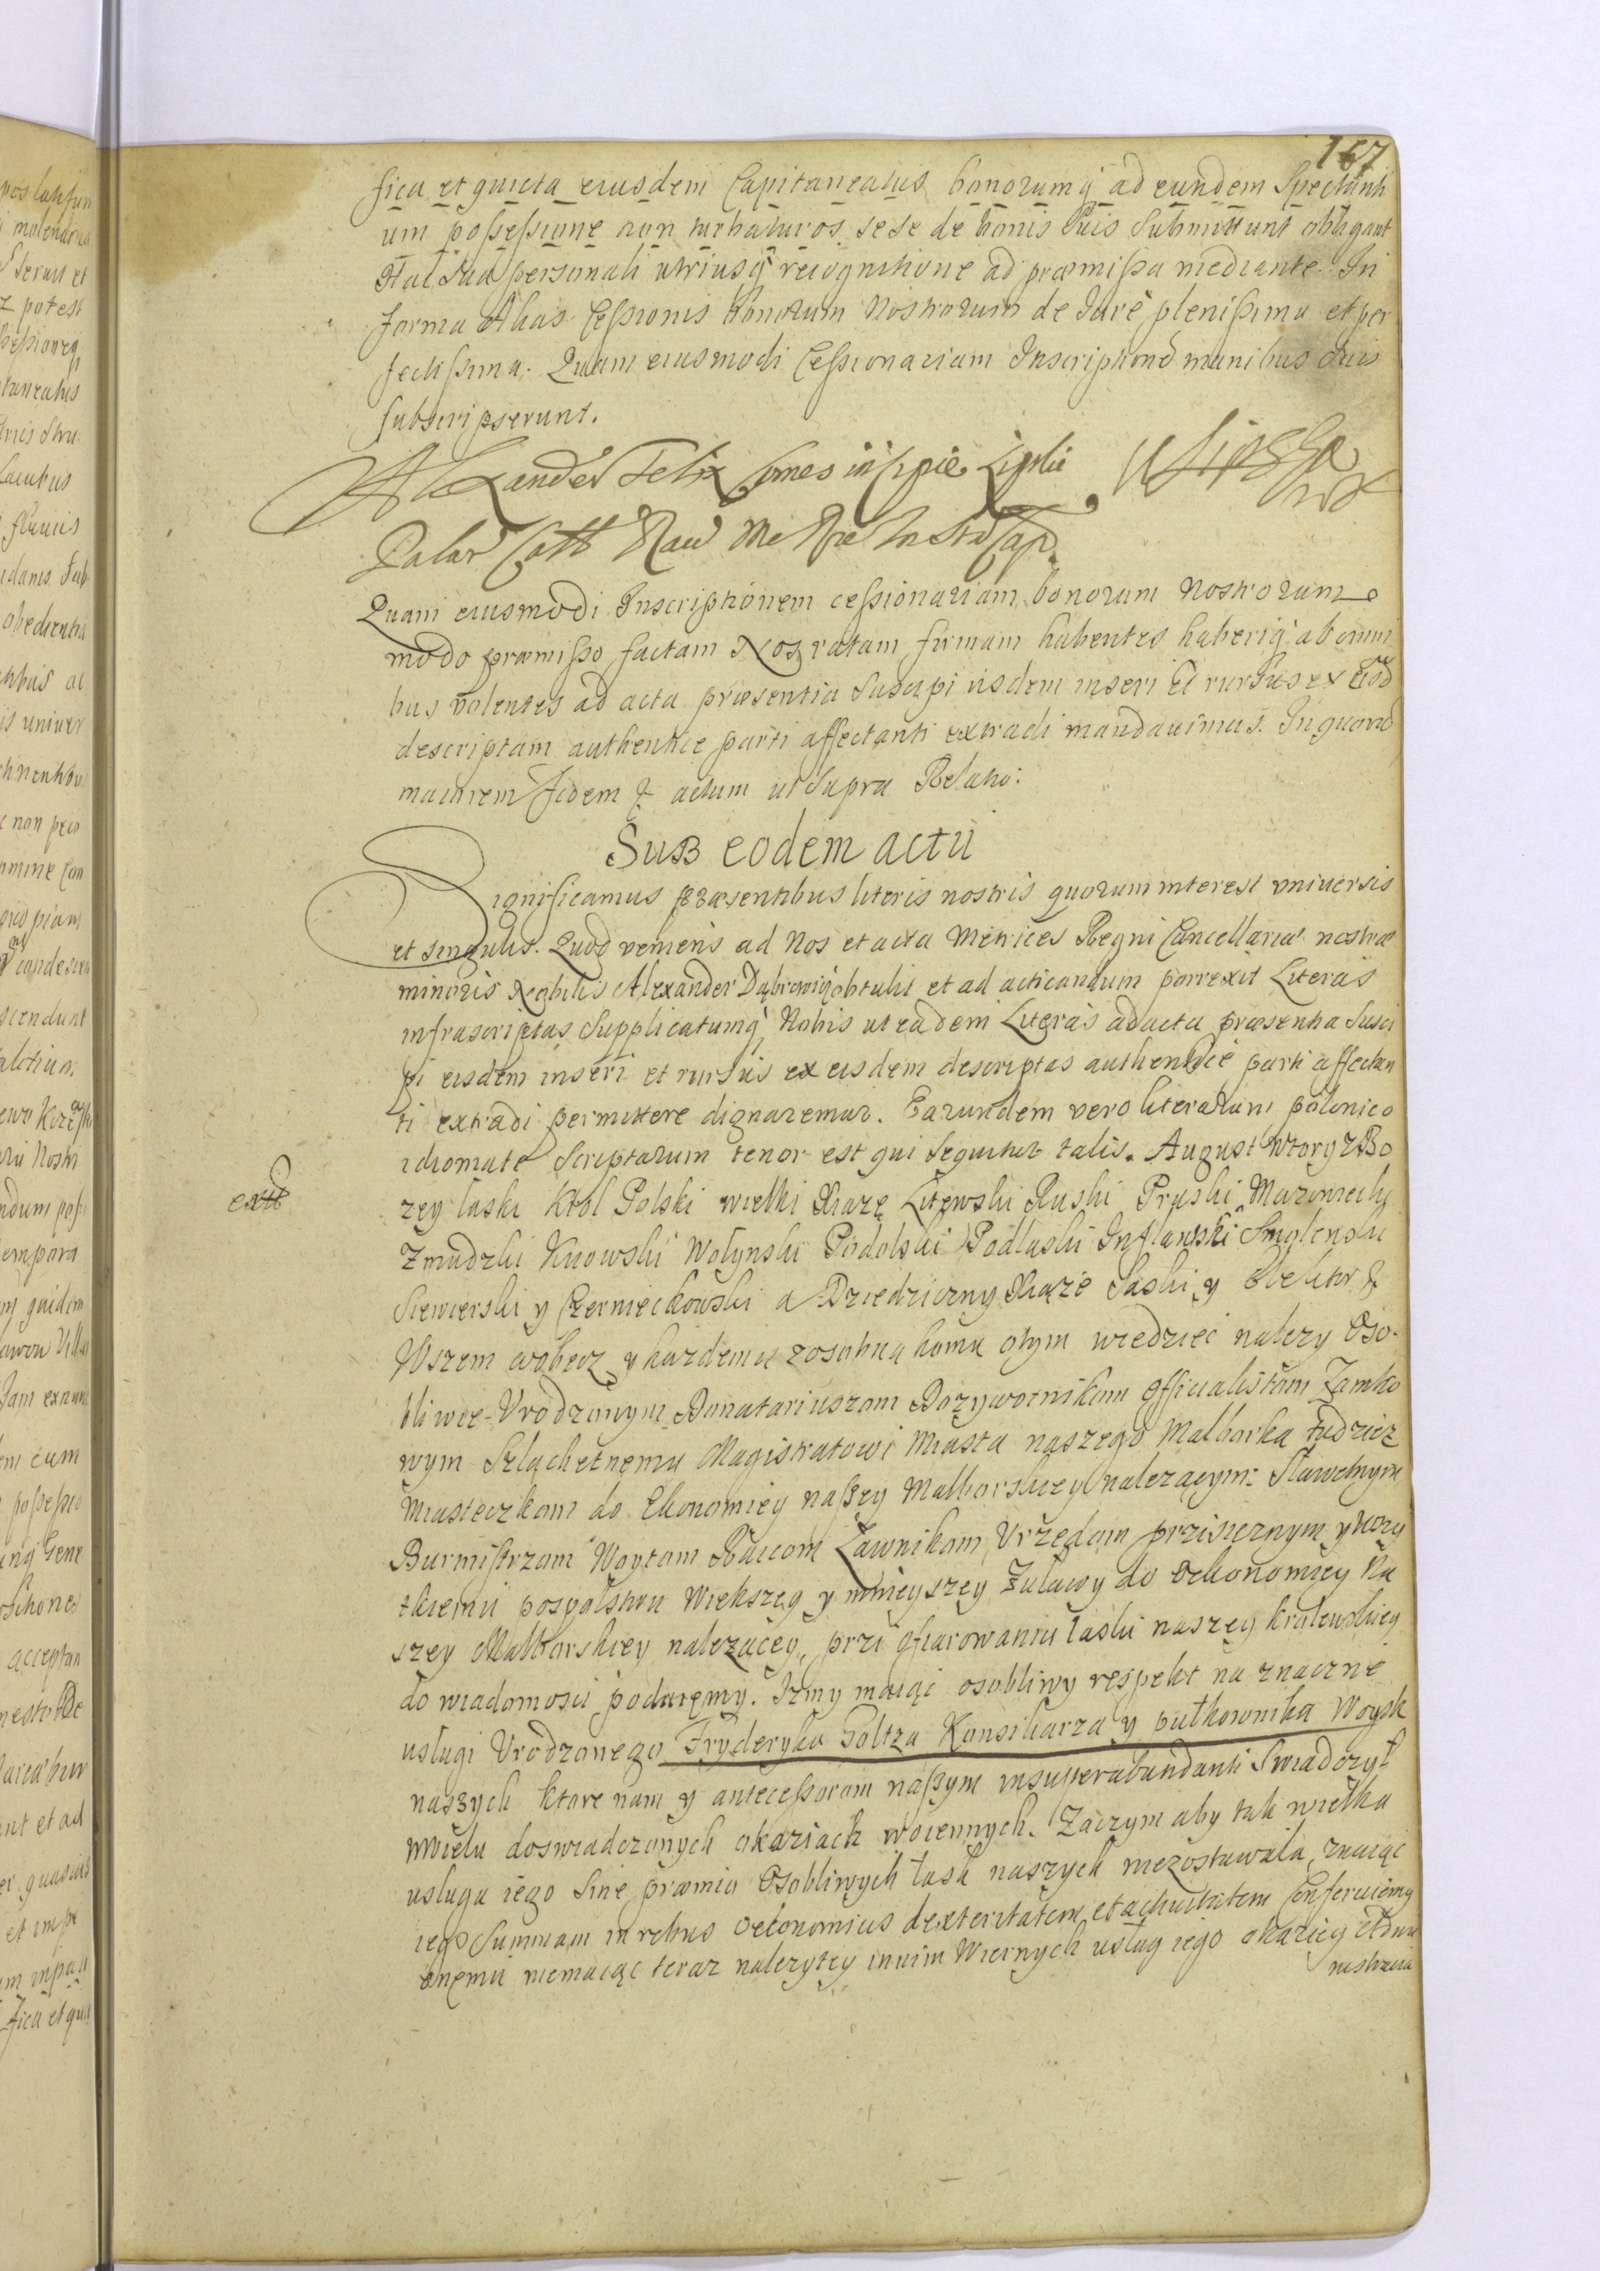 167
fica et quieta eiusdem Capitaneatus bonorumq ad eundem Spectanti
um possessione non turbaturos sese de bonis suis submittunt obligant
Hac sua personali utriusq recognitione ad præmissa mediante. In
forma Alias Cessionis bonorum Nostrorum de Jure plenissima et per
fectissima. Quam eiusmodi Cessionariam Inscriptione manibus suis
subscripserunt.
Alexander Felix Comes in Lipie Lipski
Palat
Quam eiusmodi Inscriptionem cessionariam bonorum Nostrorum
modo præmisso factam Nos ratam firmam habentes haberiq ab omni
bus volentes ad acta præsentia suscipi iisdem inseri Et rursus ex eisd
descriptam authentice parti affectanti extradi mandavimus. In quorum
maiorem fidem & actum ut supra Relatio:
Sub eodem actu
Significamus Præsentibus literis nostris quorum interest universis
et singulis. Quod veniens ad Nos et acta Metrices Regni Cancellariæ nostræ
minoris Nobilis Alexander Dąbrowicz obtulit et ad acticandum porrexit Literas
infrascriptas Supplicatumq, Nobis ut eadem Literas ad acta præsentia Susci
pi eisdem inseri et rursus ex eisdem descriptas authentice parti affectan
ti extradi permittere dignaremur. Earundem vero literarum polonico
idiomate Scriptarum tenor est qui sequitur talis. August Wtory z Bo
extt
zey łaski Krol Polski wielki Xiązę Litewski Ruski Pruski Mazowiecki
Zmudzki Kiiowski Wołynski Podolski Podlaski Inflantski Smolenski
Siewierski y Czerniechowski a Dziedziczny Xiąże Saski y Elektor &
Wszem wobecz y kazdemu zosobna komu otym wiedzieć nalezy Oso-
bliwie Vrodzonym Donatariuszom Dozywotnikom officialistom Zamko
wym Szlachetnemu Magistratowi Miasta naszego Malborka tudziez
Miasteczkom do Ekonomiey naszey Malborskiey nalezącym: Sławetnym
Burmistrzom Woytom Raicom Ławnikom, Vrzędom przisieznym y wszy
tkiemu pospolstwu Wiekszey y mnieyszey Zuławy do Oekonomiey Na
szey Malborskiey nalezącey, przi ofiarowaniu łaski naszey krolewskiey
do wiadomosci podaięmy. Izmy maiąc osobliwy respekt na znaczne
usługi Vrodzonego Fryderyka Goltza Konsiliarza y pułkownika Woysk
naszych ktore nam y antecessorom naszym insuperabundanti swiadczył
wwielu doswiadczonych okaziach woiennych. Zaczym aby tak wielka
usługa iego sine præmio Osobliwych łask naszych niezostawała, znaiąc
iego Summam in rebus oeconomicis dexteritatem et activitatem Conferuiemy
onemu niemaiąc teraz nalezytey innim Wiernych usług iego okaziey